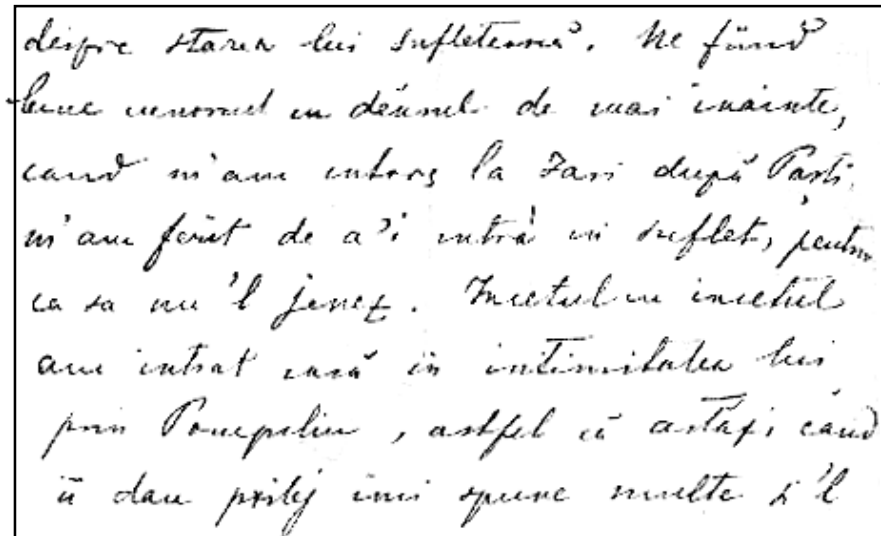 despre starea lui sufletească. Ne fiind
bine cunoscut cu dênsul de mai inainte,
cand m'am intors la Iasi după Pasti,
m'am ferit de a'i intrà in suflet, pentru
ca sa nu 'l jenez. Incetul cu incetul
am intrat insă in intimitatea lui
prin Pompiliu, astfel că astăzi când
ii dau prilej imi spune multe si 'l